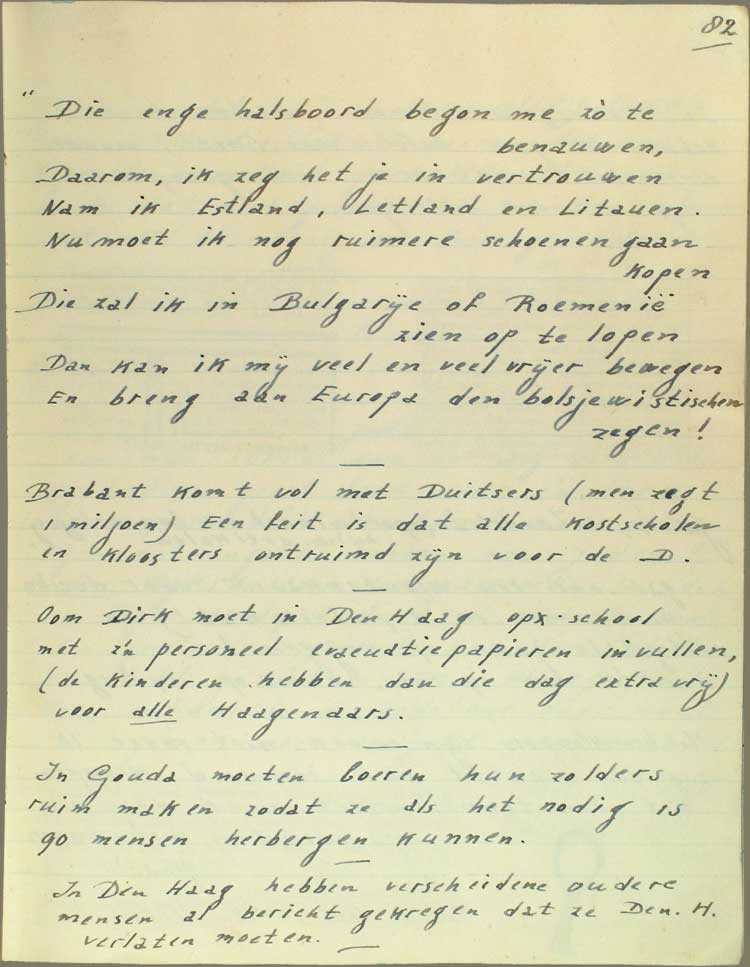 82
" Die enge halsboord begon me zò te
benauwen,
Daarom, ik zeg het je in vertrouwen
Nam ik Estland, Letland en Litauen.
Nu moet ik nog ruimere schoenen gaan
kopen
Die zal ik in Bulgarije of Roemenië
zien op te lopen
Dan kan ik mij veel en veel vrijer bewegen
En breng aan Europa den bolsjewistischen
zegen!
Brabant komt vol met Duitsers (men zegt
1 miljoen) Een feit is dat alle kostscholen
en kloosters ontruimd zijn voor de D.
Oom Dirk moet in Den Haag op x-school
met z'n personeel evacuatiepapieren invullen,
(de kinderen hebben dan die dag extra vrij)
voor alle Hagenaars.
In Gouda moeten boeren hun zolders
ruim maken zodat ze als het nodig is
90 mensen herbergen kunnen.
In Den Haag hebben verscheidene oudere
mensen al bericht gekregen dat ze Den. H.
verlaten moeten.